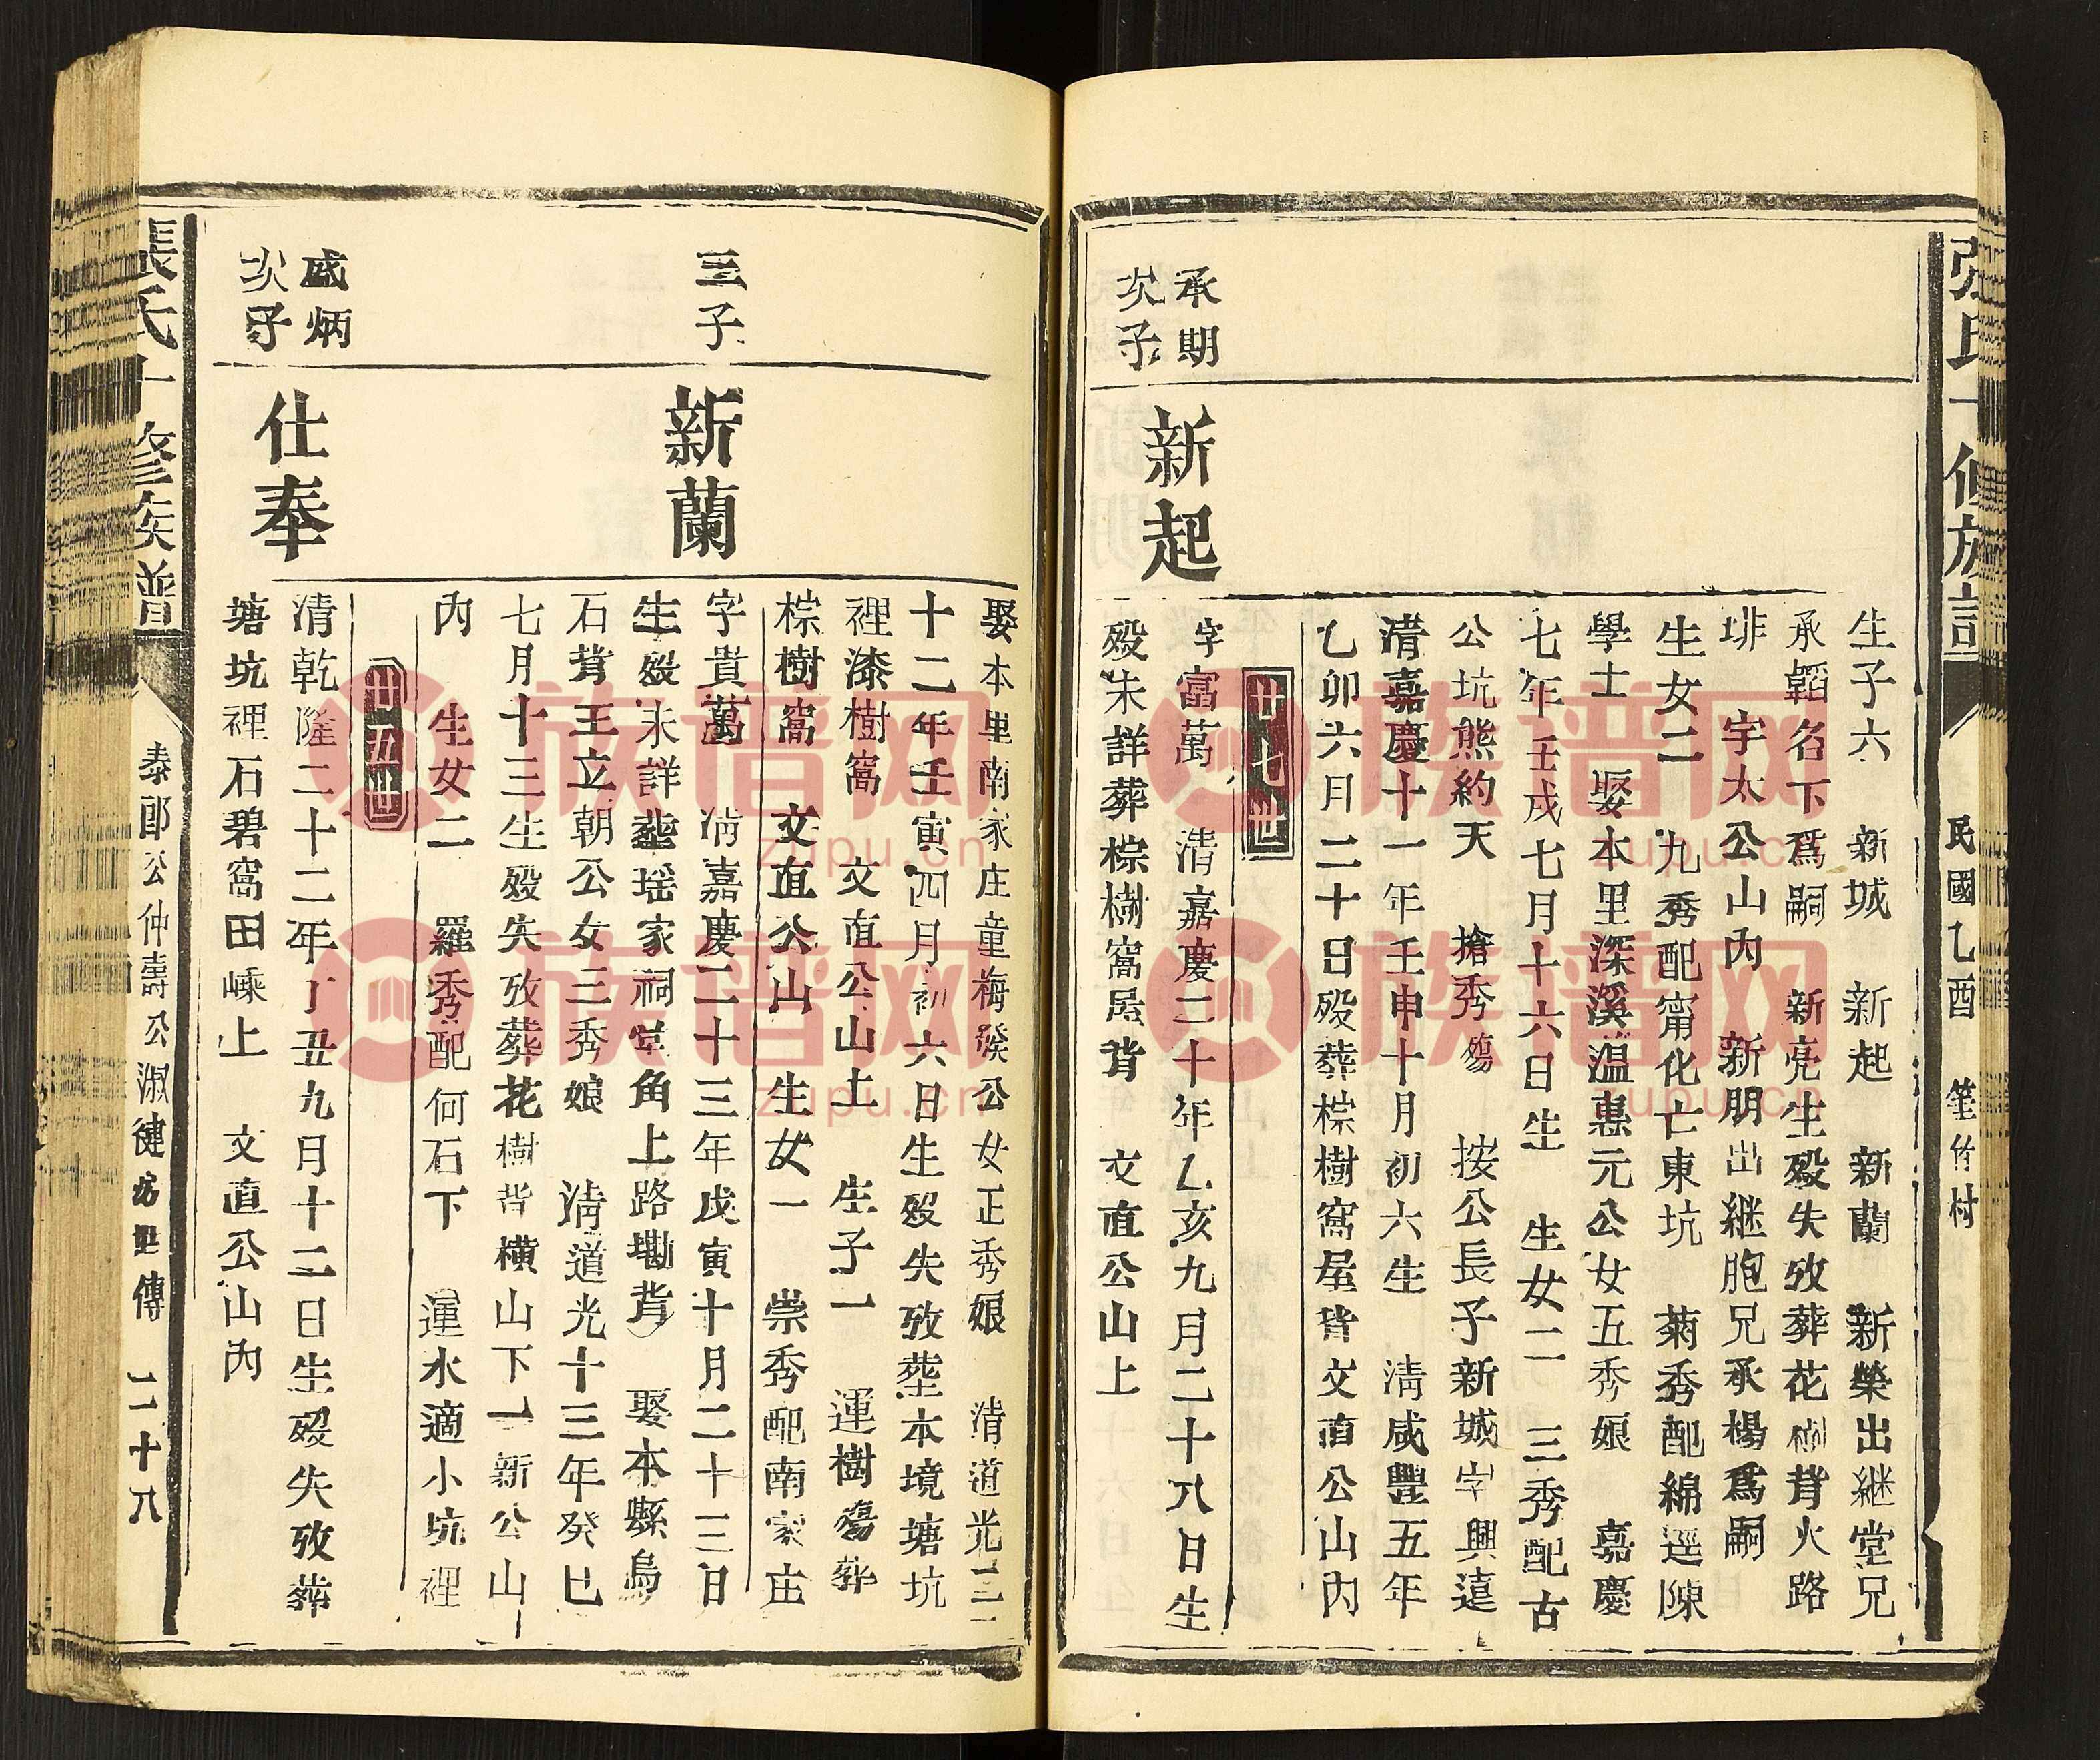 張氏十修族譜
民國乙酉 筀竹村
生子六 新城 新起 新蘭 新榮出継堂兄
承韜名下爲嗣 新亮生殁失攷葬花樹背火路
㘩 宇太公山內 新朋出継胞兄承楊爲嗣
生女二 九秀配甯化亡東坑 菊秀配綿逕陳
學士 娶本里深溪溫惠元公女五秀娘 嘉慶
七年壬戌七月十六日生 生女二 三秀配古
公坑熊約天 搶秀殤 按公長子新城字興遠
清嘉慶十一年壬申十月初六生 清咸豐五年
乙卯六月二十日殁葬棕樹窩屋背文直公山內
廿七世
承期
次子
新起
字富萬 清嘉慶二十年乙亥九月二十八日生
殁未詳葬棕樹窩屋背 文直公山上
娶本里南家庄童梅發公女正秀娘 清道光二
十二年壬寅四月初六日生殁失攷塟本境塘坑
裡漆樹窩 文直公山土 生子一 運樹殤葬
棕樹窩 文直公山 生女一 崇秀配南家庄
三子
新蘭
字貴萬 清嘉慶二十三年戊寅十月二十三日
生殁未詳塟瑶家祠堂角上路墈背 娶本縣烏
石背王立朝公女三秀娘 清道光十三年癸巳
七月十三生殁失攷葬花樹背橫山下一新公山
內 生女二 羅秀配何石下 運水適小坑裡
廿五世
盛炳
次子
仕奉
清乾隆二十二年丁丑九月十二日生殁失攷葬
塘坑裡石碧窩田㟙上 文直公山內
張氏十修族譜
泰郎公仲壽公淑健房世傳 二十八
族譜网
zupu.cn
族譜网
zupu.cn
族譜网
zupu.cn
族譜网
zupu.cn